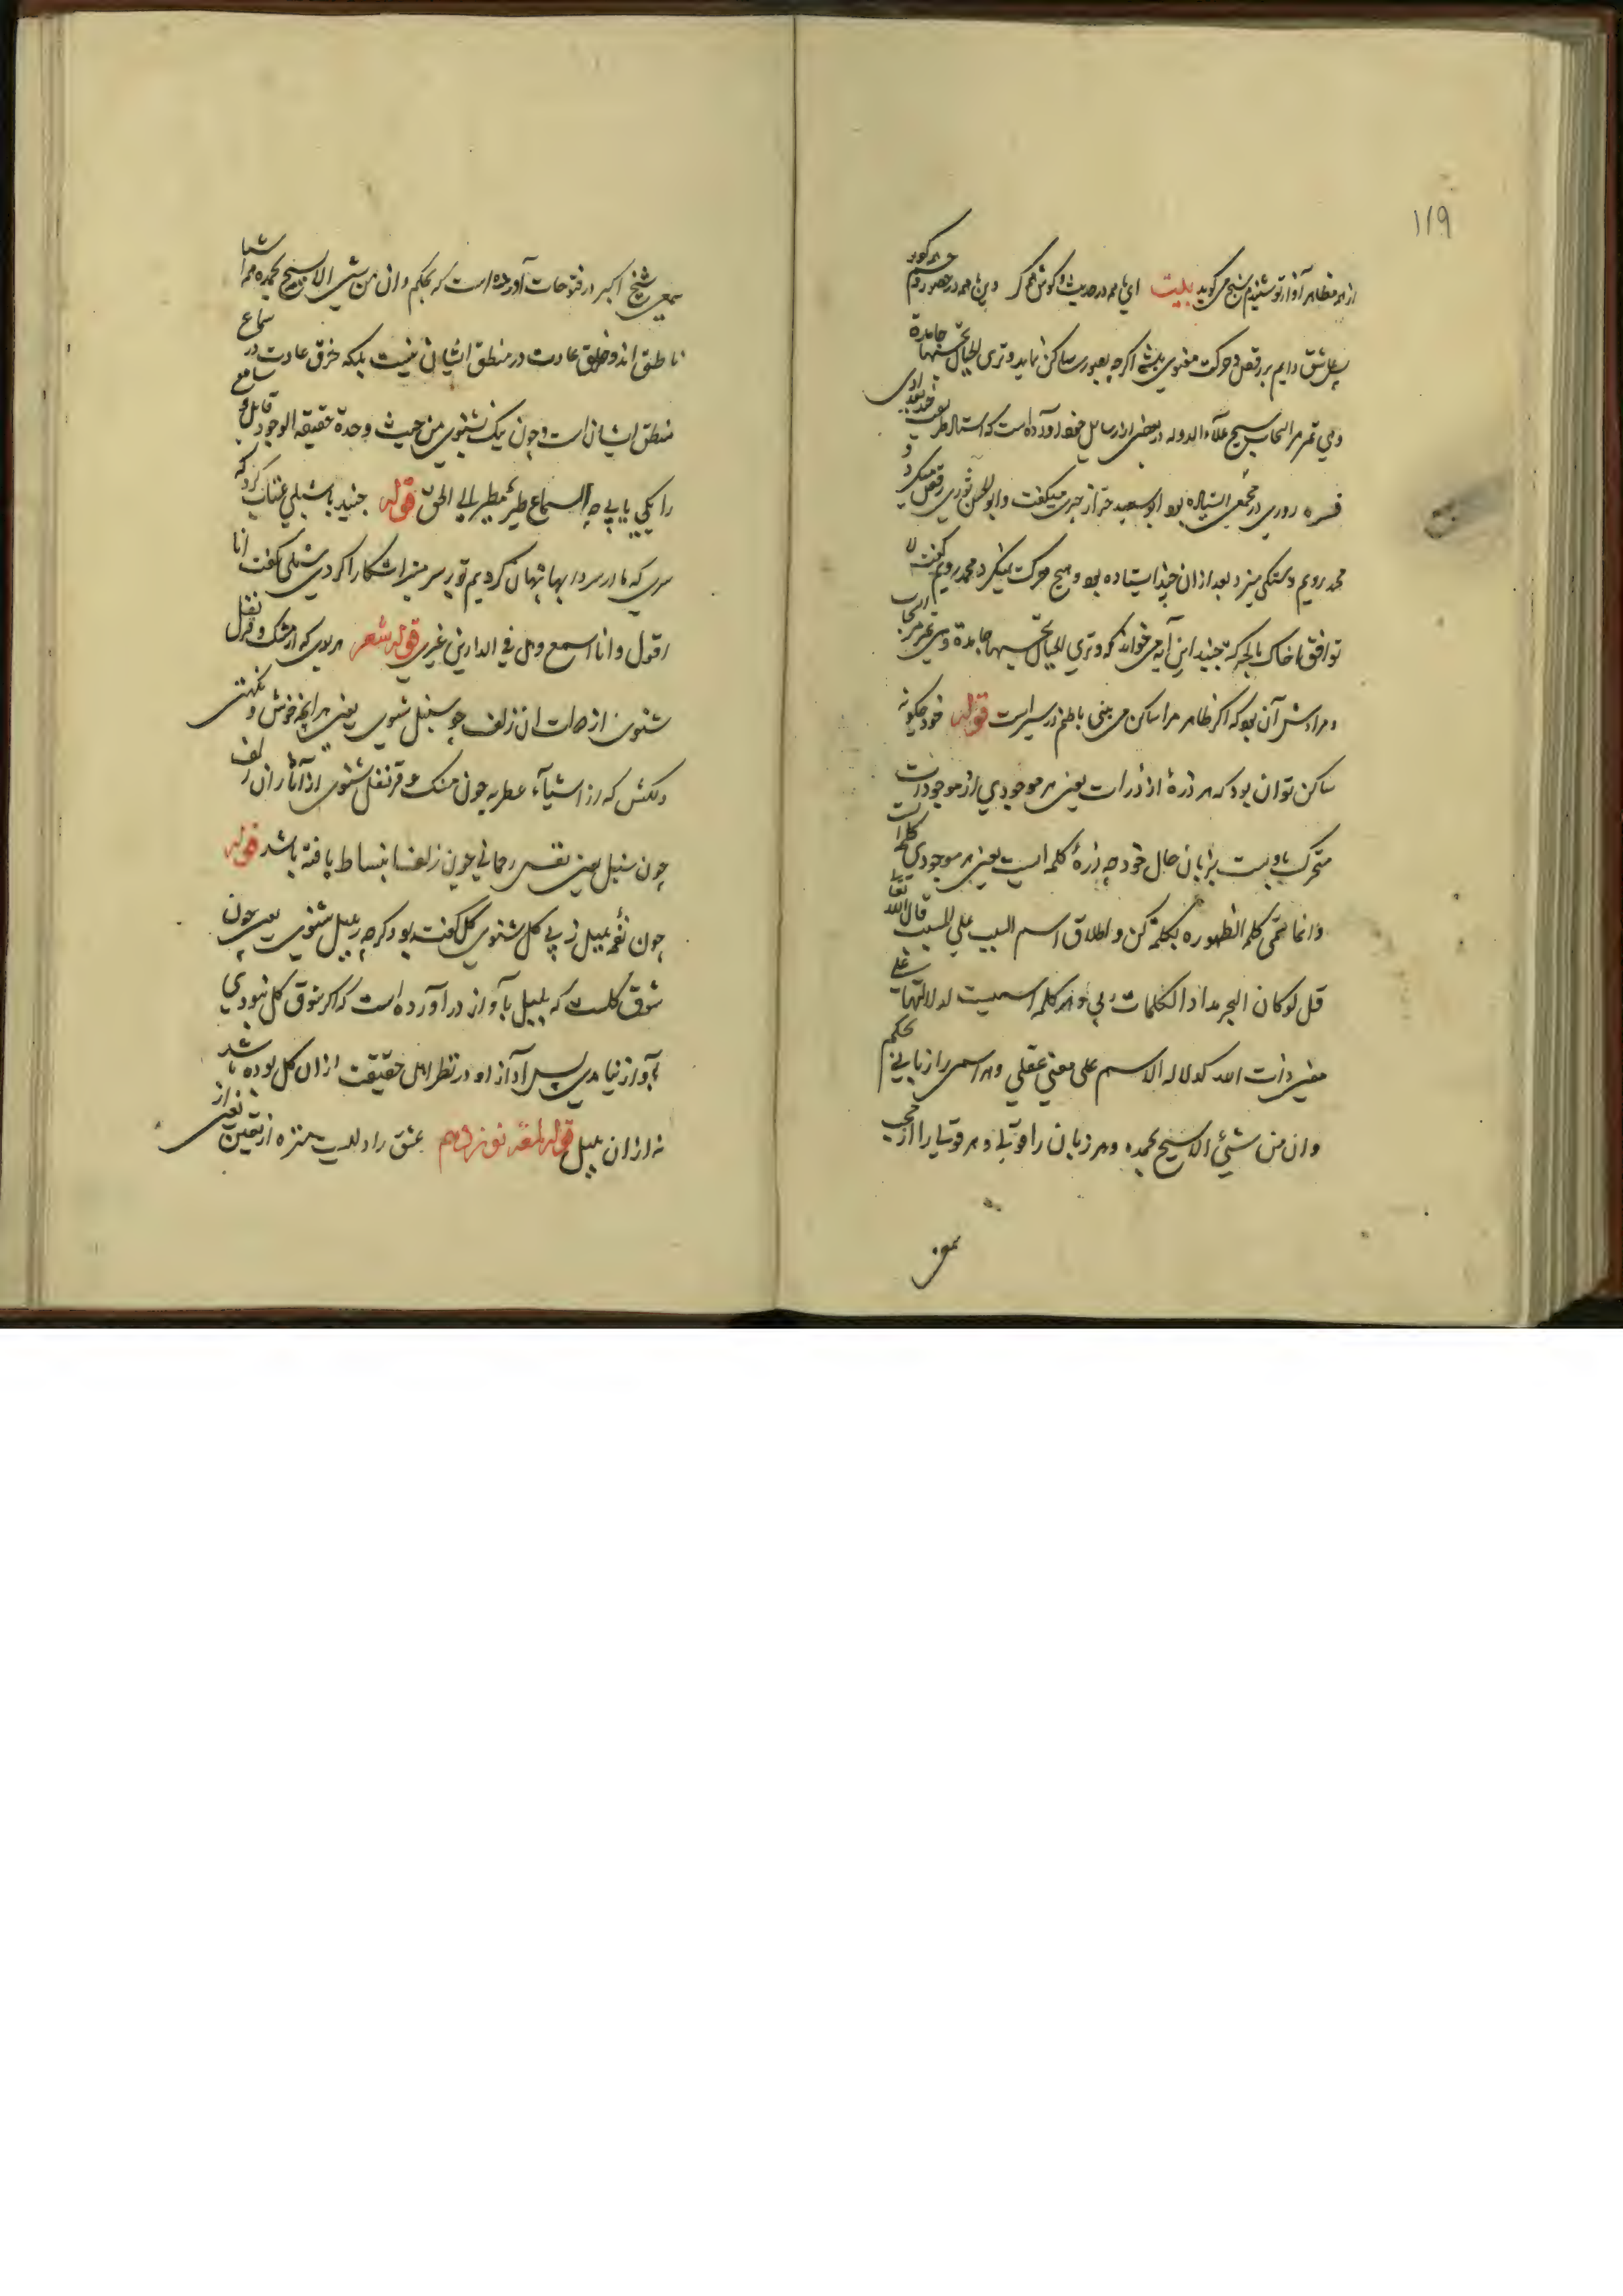 ۱۱۹
از هر مظاهر آواز تو شنیدم شیخ می گوید بیت این همه در حدیث و گوش همه کر وین همه در حضور و چشم همه کور
پس عاشق دایم در رقص و حرکت معنوی باشد اگر چه بصورت ساکن نماید و تری الجبال تحسبها جامدة
وهی تمر مر السحاب شیخ علاء الدوله در بعضی از رسایل خود آورده است که استاد طریقت جنید بغدادی
قدس سره روزی در مجمعی استاده بود ابو سعید خراز چیزی میگفت و ابو الحسن نوری رقص میکرد و
محمد رویم دستکی میزد بعد از آن جنید استاده بود و هیچ حرکت نمیکرد محمد رویم گفت لا
توافق اخاک بالحرکة جنید این آیه می خواند که و تری الجبال تحسبها جامدة وهی تمر مر السحاب
و مرادش آن بود که اگر ظاهر مرا ساکن می بینی باطنم در سیر است قوله خود چگونه
ساکن توان بود که هر ذرهٔ از ذرات یعنی هر موجودی از موجودات
متحرک باویست بزبان حال خود چه ذرهٔ کلمه ایست یعنی هر موجودی کلمه است
وانما سمی کلمه لظهوره بکلمة کن و اطلاق اسم السبب علی المسبب قال الله تعالی
قل لو کان البحر مدادا لکلمات ربی و هر کلمه اسمیست لدلالتها علی
معنی ذات الله کدلاله الاسم علی معنی عقلی و هر اسمی را زبانی بحکم
وان من شیء الا یسبح بحمده و هر زبان را قولی و هر قولی را از محب
سمعی
سمعی شیخ اکبر در فتوحات آورده است که بحکم وان من شیء الا یسبح بحمده همه اشیا
ناطق اند و خرق عادت در منطق ایشان نیست بلکه خرق عادت در سماع
منطق ایشان است و چون نیک بشنوی من حیث وحدة حقیقة الوجود قایل و سامع
را یکی یابی چه السماع طیر یطیر الی الحق قوله جنید با شبلی عتاب کرد که
سری که ما در سردابها پنهان کردیم تو بر سر منبر آشکارا کردی شبلی گفت انا
اقول وانا اسمع وهل فی الدارین غیری قوله شعر هر بوی که از مشک و قرنفل
شنوی از دولت آن زلف چو سنبل شنوی یعنی هر رایحه خوش و نکهتی
دلکش که از اشیاء عطریه چون مشک و قرنفل شنوی از آثار آن زلف
چون سنبل یعنی نفس رحمانی چون زلف انبساط یافته باشد قوله
چون نغمه بلبل ز پی گل شنوی گل گفته بود گرچه ز بلبل شنوی یعنی چون
شوق گلست که بلبل بآواز در آورده است که اگر شوق گل نبودی
بآواز نیامدی پس آواز او در نظر اهل حقیقت از آن گل بوده باشد
نه از آن بلبل قوله لمعه نوزدهم عشق را دلیست منزه از تعین یعنی از